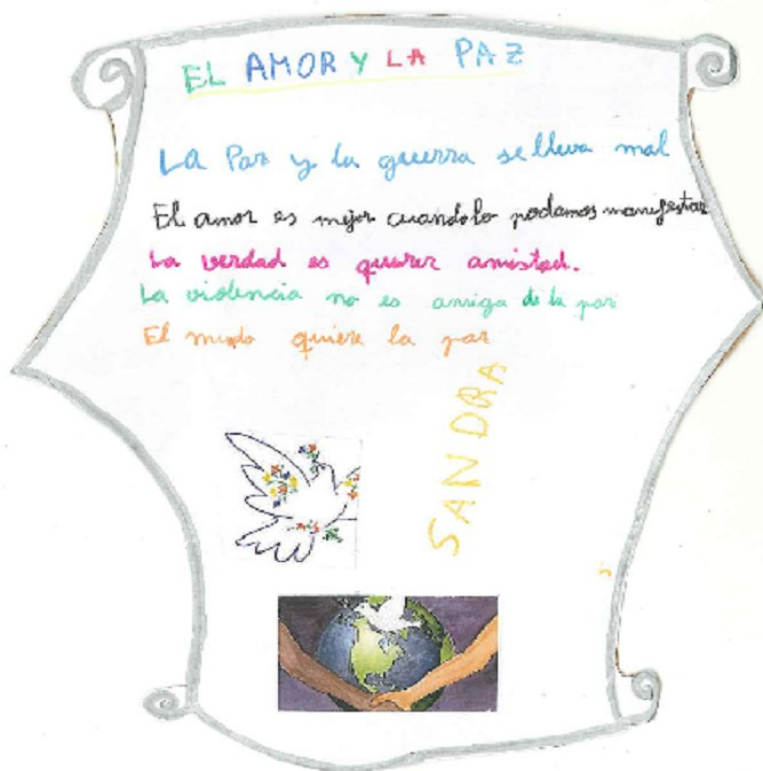 EL AMOR Y LA PAZ
LA Paz y la guerra se lleva mal
El amor es mejor cuando lo podamos manifestar
La verdad es querer amistad.
La violencia no es amiga de la paz
El mundo quiere la paz
SANDRA